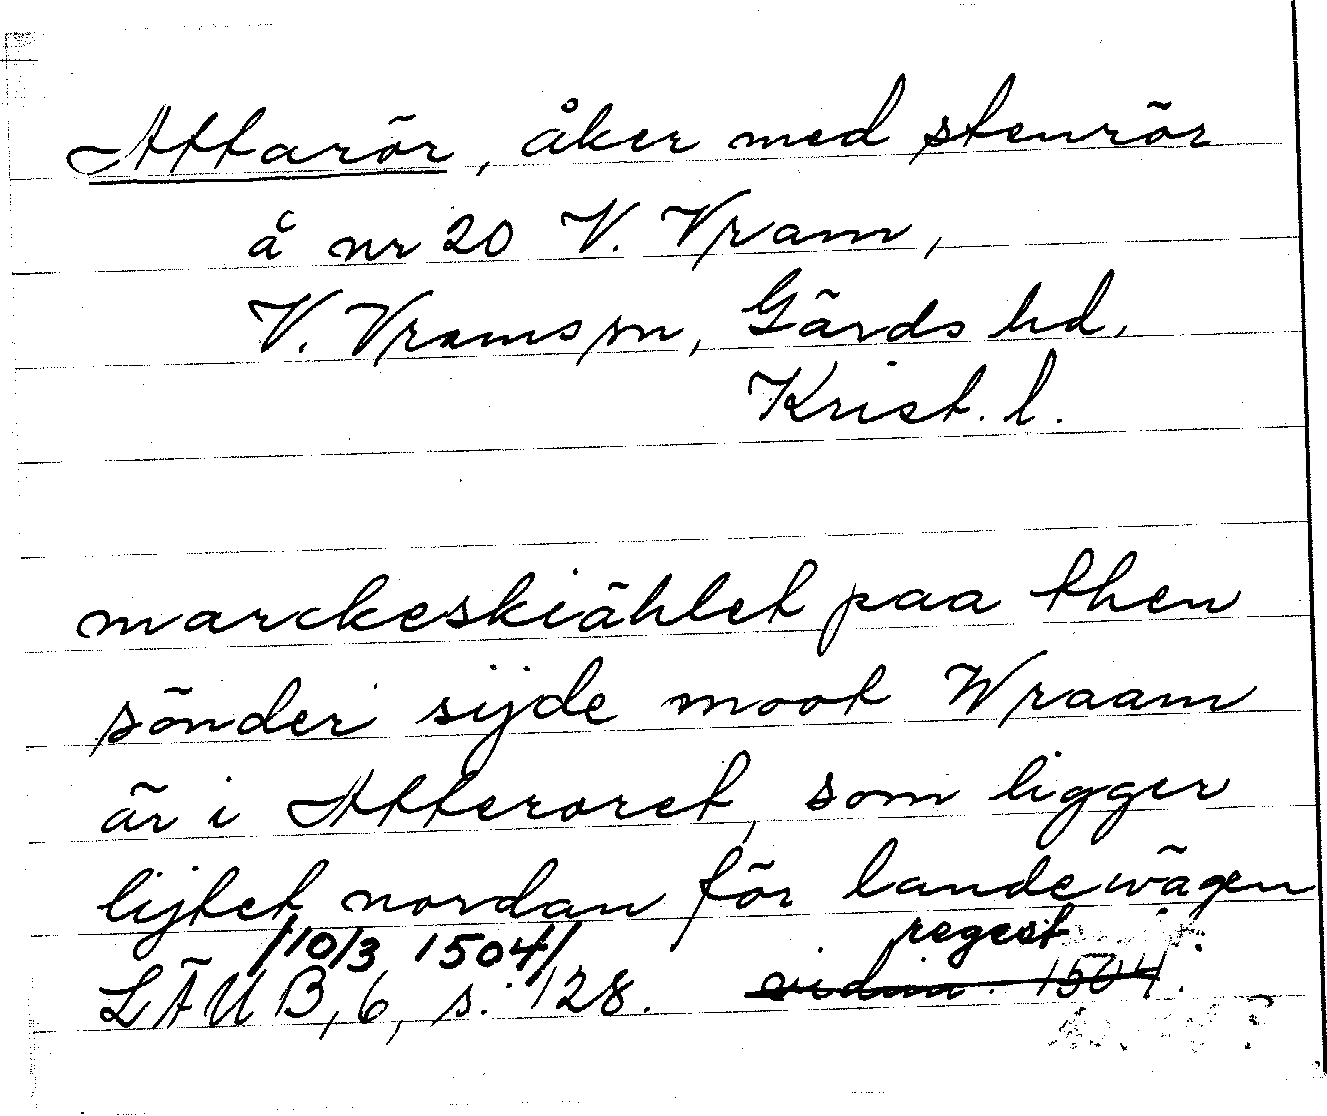 Attarör, åker med stenrör
å nr 20 V. Vram,
V. Vrams sn, Gärds hd,
Krist. l.
marckeskiählet paa then
sönder sijde moot Wraam
är i Atteroret, som ligger
lijtet nordan för landewägen
/10/3 1504/ regest
LÄUB, 6, s. 128. vidim. 1504.